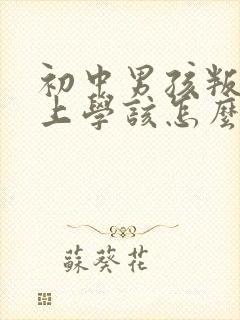 初中男孩叛
上學該怎麼
蘇葵花